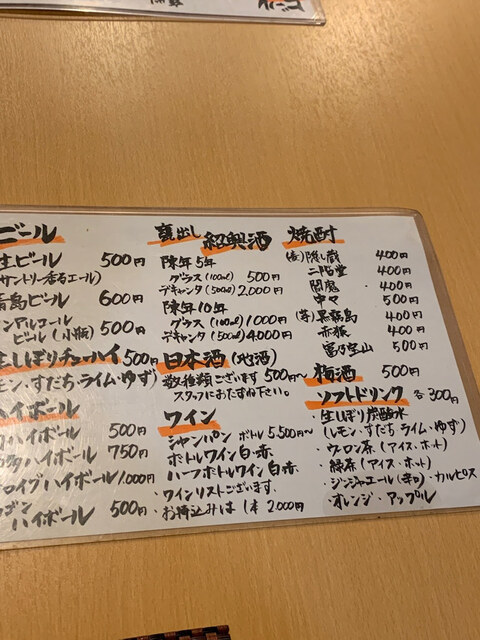 ビール
生ビール 500円
サントリー香るエール)
青島ビール 600円
ンアルコール
ビール(小瓶) 500円
生しぼりチューハイ 500円
レモン・すだち・ライム・ゆず)
ハイボール
ハイボール 500円
ハイボール 750円
ハイボール 1,000円
ハイボール 500円
甕出し 紹興酒
陳年5年
グラス(100ml) 500円
デキャンタ(500ml) 2,000円
陳年10年
グラス(100ml) 1000円
デキャンタ(500ml) 4,000円
日本酒(地酒)
数種類ございます 500円〜
スタッフにおたずね下さい。
ワイン
・シャンパン ボトル 5,500円〜
・ボトルワイン白・赤
・ハーフボトルワイン白・赤
・ワインリストございます。
・お持込みは 1本 2,000円
焼酎
(麦)隠し蔵 400円
二階堂 400円
閻魔 400円
中々 500円
(芋)黒霧島 400円
赤猿 400円
富乃宝山 500円
梅酒 500円
ソフトドリンク 各300円
・生しぼり炭酸水
(レモン・すだち ライム・ゆず)
・ウーロン茶(アイス・ホット)
・緑茶(アイス・ホット)
・ジンジャエール(辛口)・カルピス
・オレンジ・アップル